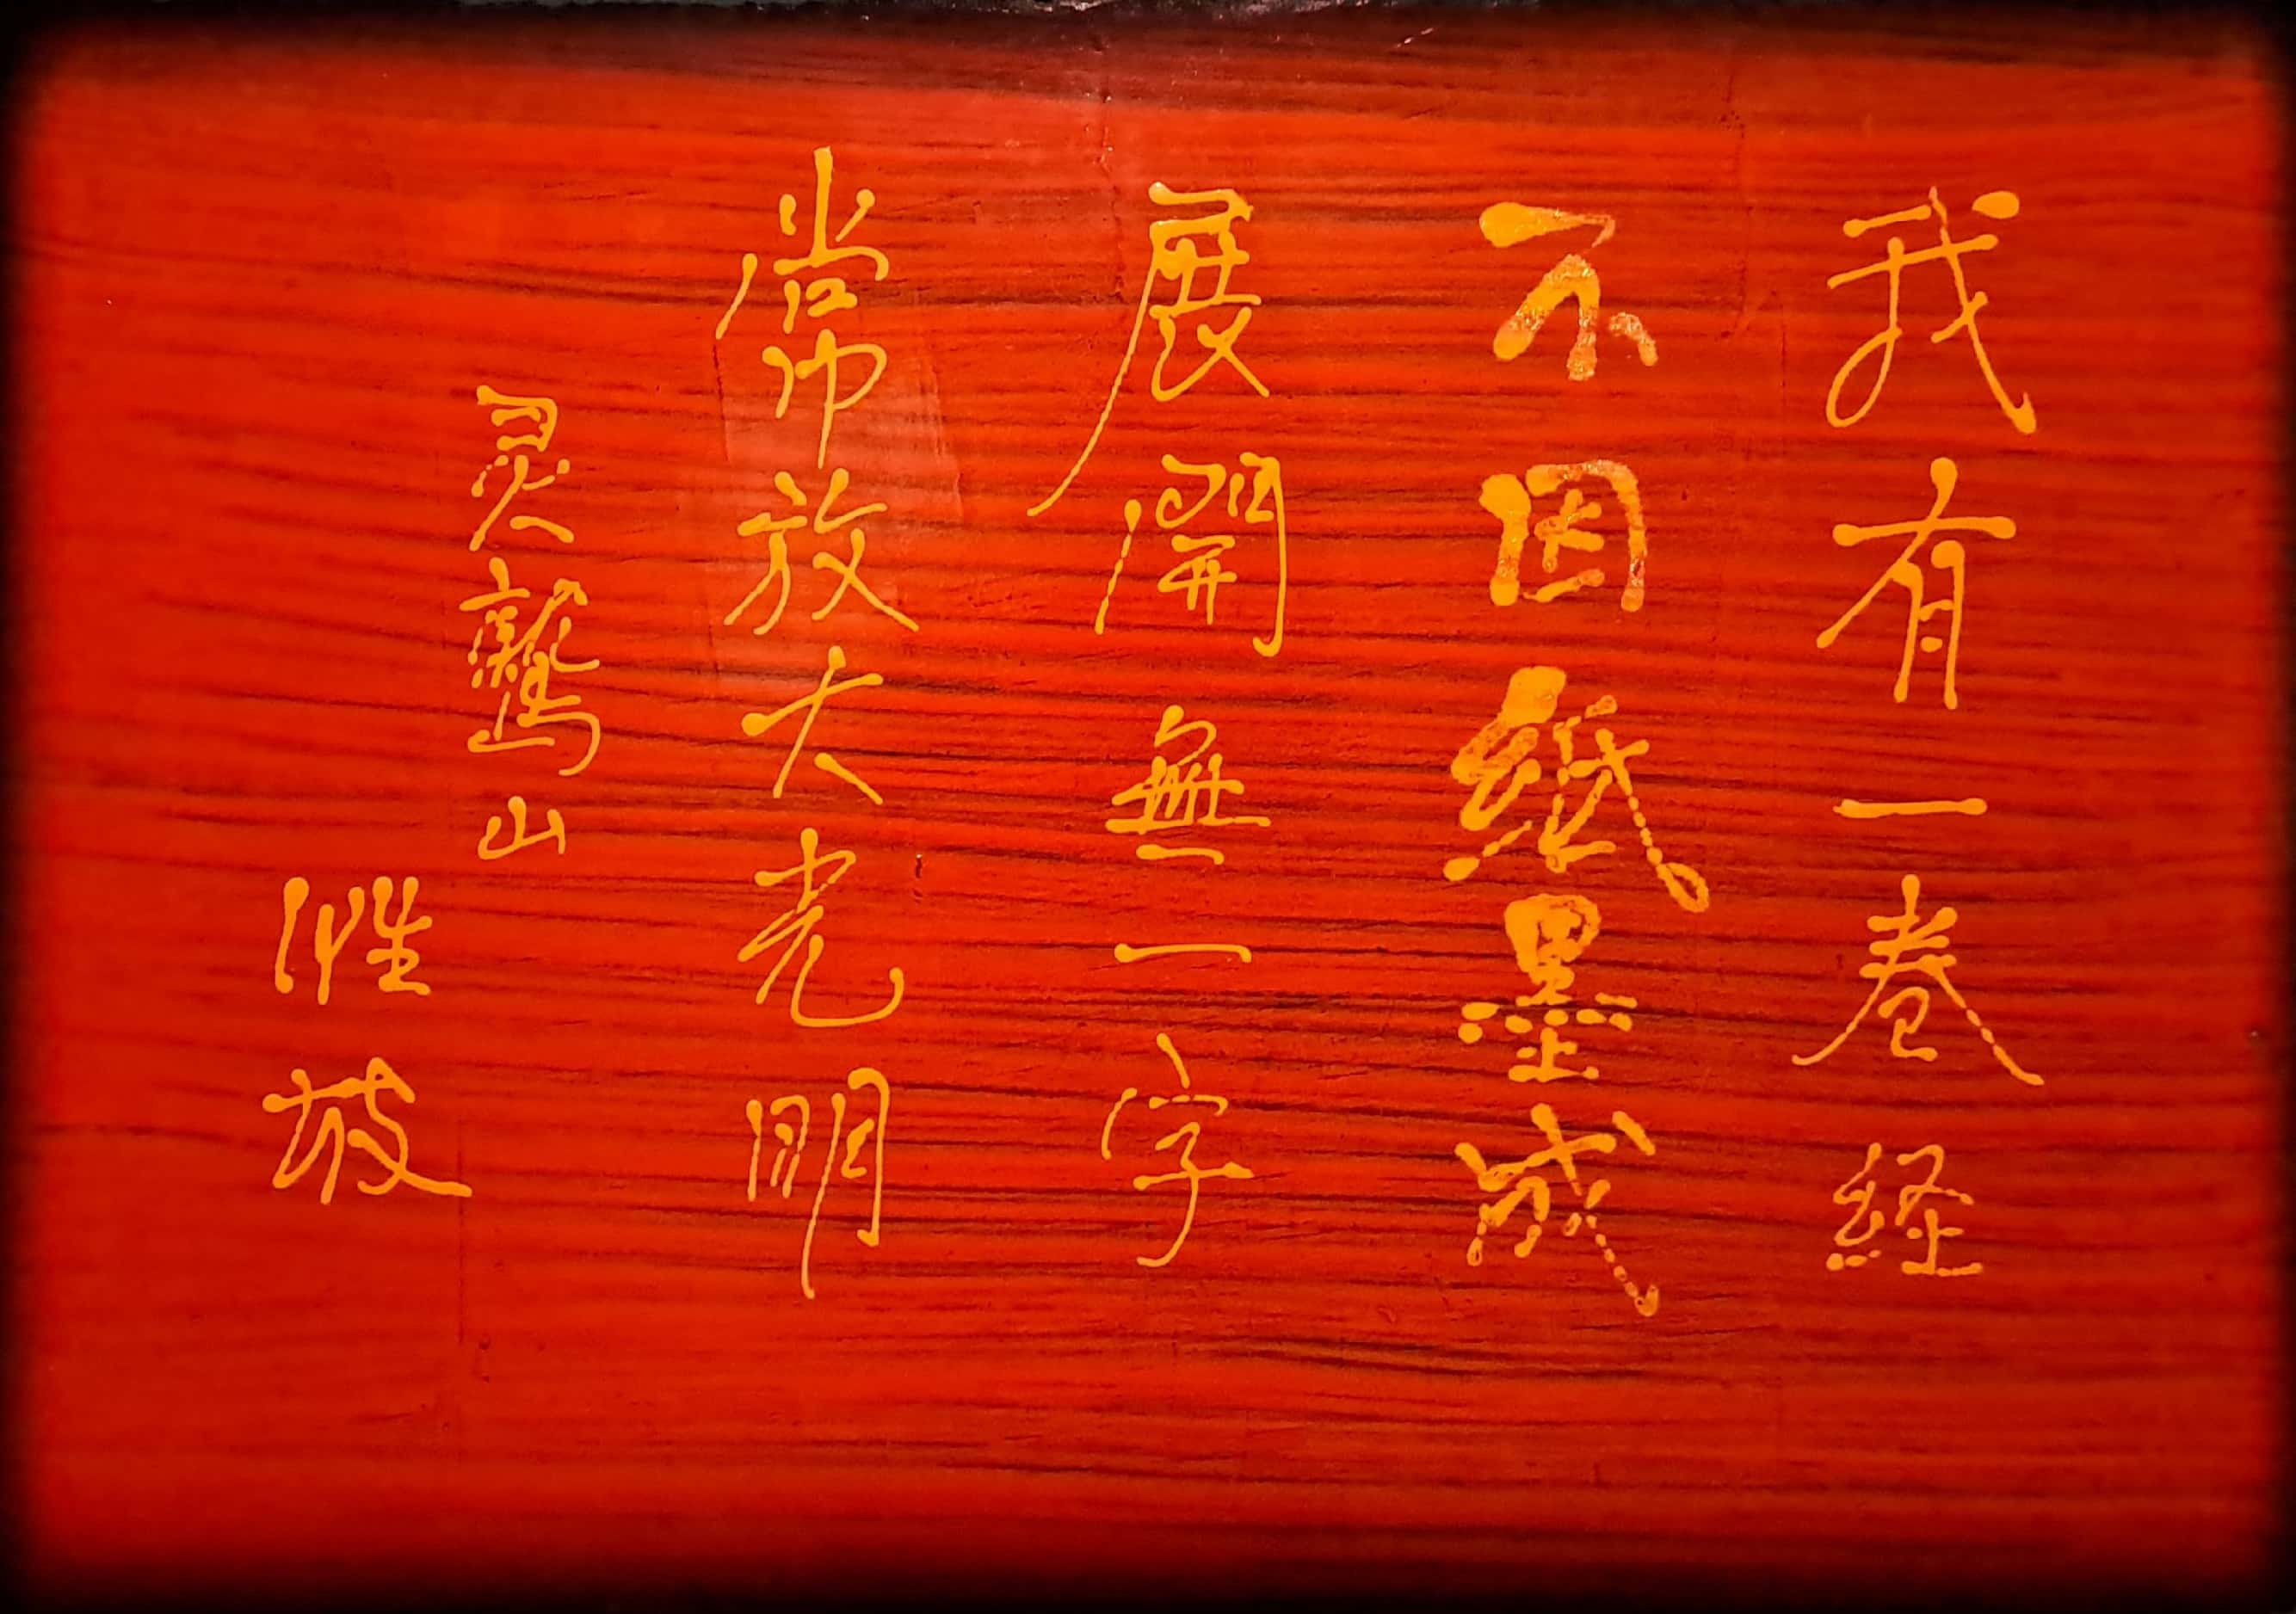 我有一卷経
不因紙墨成
展開無一字
常放大光明
灵鷲山